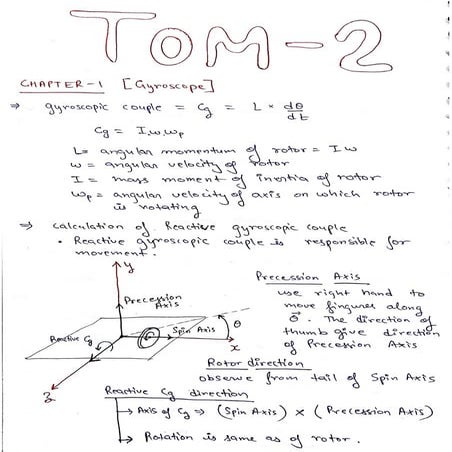 TOM-2
CHAPTER-1 [Gyroscope]
⇒ gyroscopic couple = Cg = L × dθ/dt
Cg = I.ω.ωp
L= angular momentum of rotor = Iω
ω = angular velocity of rotor
I = mass moment of inertia of rotor
ωp = angular velocity of axis on which rotor
is rotating
⇒ calculation of Reactive gyroscopic couple
• Reactive gyroscopic couple is responsible for
movement.
y
Precession
Axis
Reactive Cg
Spin Axis
θ
x
z
Precession Axis
use right hand to
move fingures along
θ. The direction of
thumb give direction
of Precession Axis
Rotor direction
observe from tail of Spin Axis
Reactive Cg direction
→ Axis of Cg ⇒ (Spin Axis) × (Precession Axis)
→ Rotation is same as of rotor.